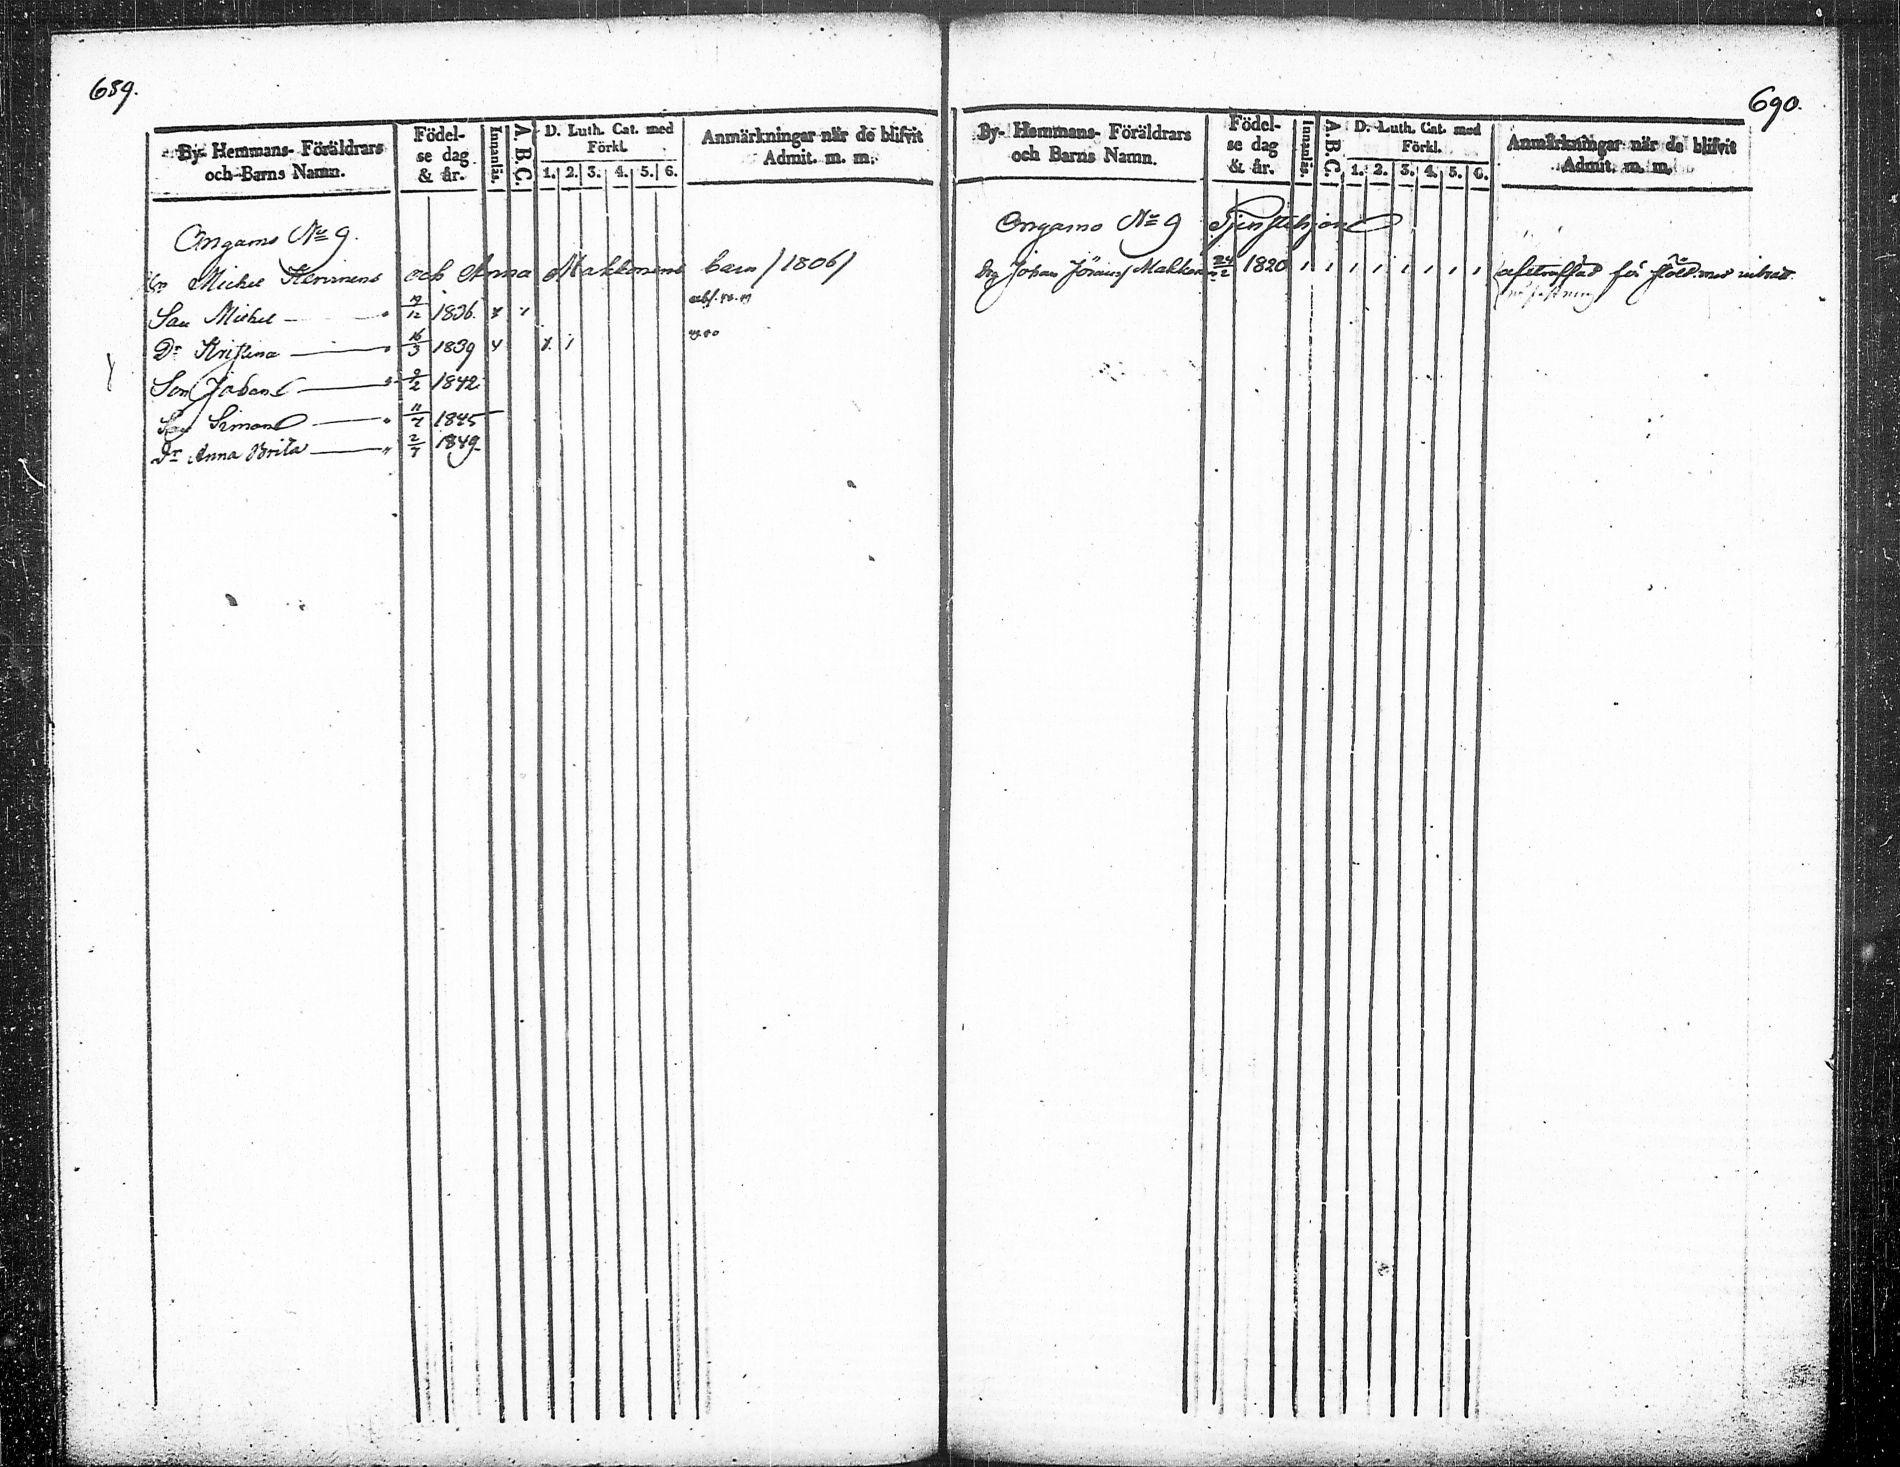 689.
By- Hemmans- Föräldrars och Barns Namn.
Födelse dag & år.
Innanläs.
A. B. C.
D. Luth. Cat. med Förkl.
1. 2. 3. 4. 5. 6.
Anmärkningar när de blifvit Admit. m. m.
Ongamo No 9.
Michel Hämines och Anna Makkonens barn /1806/
Son Michel 12 1836.
Dr Kristina 16/3 1839
Son Johan 9/2 1842
Son Simon 11/7 1845
Dr Anna Brita 2/7 1849
690.
By- Hemmans- Föräldrars och Barns Namn.
Födelse dag & år.
Innanläs.
A. B. C.
D. Luth. Cat. med Förkl.
1. 2. 3. 4. 5. 6.
Anmärkningar när de blifvit Admit. m. m.
Ongamo No 9 Tjenstehjon
Johan 24/2 1820 för